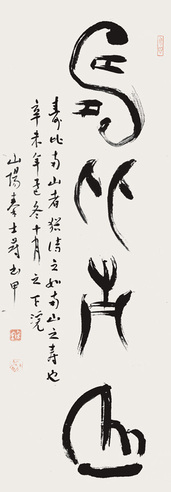 壽比南山
壽比南山者猶詩之如南山之壽也
辛未年孟冬十月之下浣
山陽秦士蔚書甲